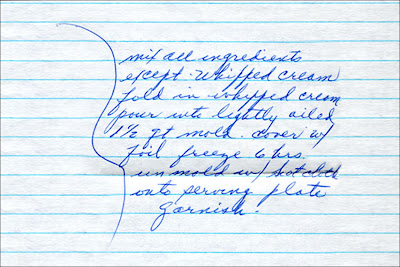 mix all ingredients
except - whipped cream
fold in whipped cream
pour into lightly oiled
1½ qt mold. cover w/
foil freeze 6 hrs.
un mold w/ hot cloth
onto serving plate
Garnish.